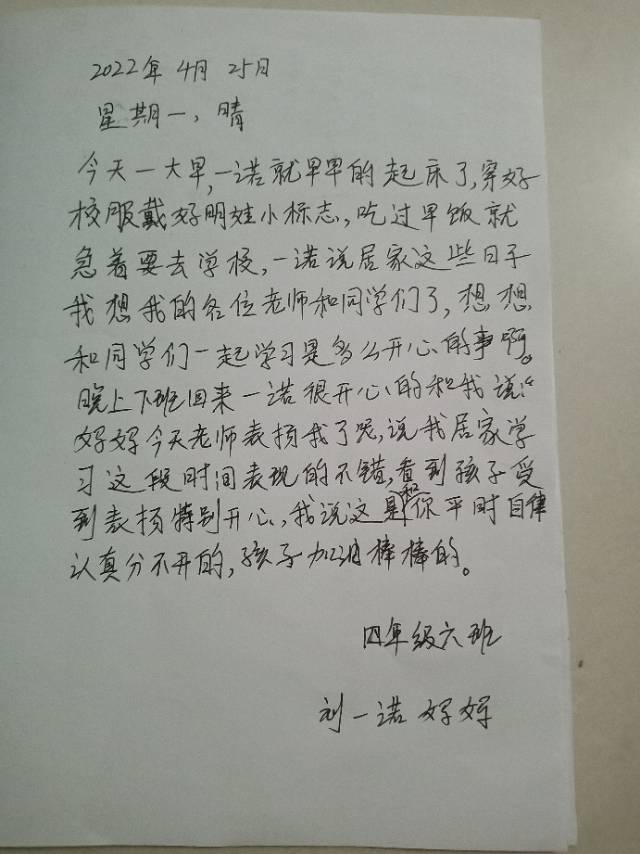 2022年4月25日
星期一，晴
今天一大早，一诺就早早的起床了，穿好
校服戴好明娃小标志，吃过早饭就
急着要去学校，一诺说居家这些日子
我想我的各位老师和同学们了，想想
和同学们一起学习是多么开心的事啊。
晚上下班回来一诺很开心的和我说：“
好好今天老师表扬我了呢，说我居家学
习这段时间表现的不错，看到孩子受
到表扬特别开心，我说这是和你平时自律
认真分不开的，孩子加油棒棒的。
四年级六班
刘一诺 好好